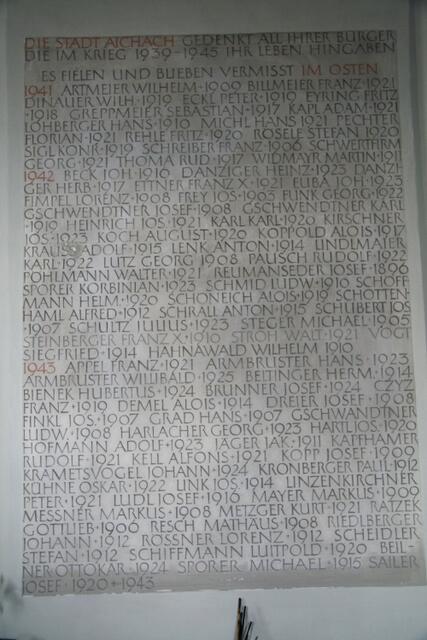 DIE STADT AICHACH GEDENKT ALL IHRER BÜRGER
DIE IM KRIEG 1939–1945 IHR LEBEN HINGABEN
ES FIELEN UND BLIEBEN VERMISST IM OSTEN
1941 ARTMEIER WILHELM·1909 BILLMEIER FRANZ·1921
DINAUER WILH·1919 ECKL PETER·1919 EYRING FRITZ
·1918 GREPPMEIER SEBASTIAN·1917 KAPL ADAM·1921
LOHBERGER HANS·1910 MICHL HANS·1921 PECHTER
FLORIAN·1921 REHLE FRITZ·1920 RÖSELE STEFAN·1920
SIGL KONR·1919 SCHREIBER FRANZ·1906 SCHWERTFIRM
GEORG·1921 THOMA RUD·1917 WIDMAYR MARTIN·1911
1942 BECK JOH·1916 DANZIGER HEINZ·1923 DANZI-
GER HERB·1917 ETTNER FRANZ X·1921 EUBA JOH·1923
FIMPEL LORENZ·1908 FREY JOS·1903 FUNK GEORG·1922
GSCHWENDTNER JOSEF·1908 GSCHWENDTNER KARL
·1919 HEINRICH JOS·1921 KARL KARL·1920 KIRSCHNER
JOS·1923 KOCH AUGUST·1920 KOPPOLD ALOIS·1917
KRAUS ADOLF·1915 LENK ANTON·1914 LINDLMAIER
KARL·1922 LUTZ GEORG·1908 PAUSCH RUDOLF·1922
POHLMANN WALTER·1921 REUMANSEDER JOSEF·1896
SPORER KORBINIAN·1923 SCHMID LUDW·1910 SCHOFF-
MANN HELM·1920 SCHÖNEICH ALOIS·1919 SCHOTTEN-
HAML ALFRED·1912 SCHRALL ANTON·1915 SCHUBERT JOS
·1907 SCHULTZ JULIUS·1923 STEGER MICHAEL·1905
STEINBERGER FRANZ X·1910 STROH WALT·1921 VOGT
SIEGFRIED·1914 HAHNAWALD WILHELM·1916
1943 APPEL FRANZ·1921 ARMBRUSTER HANS·1923
ARMBRUSTER WILLIBALD·1925 BELLINGER HERM·1914
BIENEK HUBERTUS·1924 BRUNNER JOSEF·1924 CZYZ
FRANZ·1919 DEMEL ALOIS·1914 DREIER JOSEF·1908
FINKL JOS·1907 GRAD HANS·1907 GSCHWANDTNER
LUDW·1908 HARLACHER GEORG·1923 HARTL JOS·1920
HOFMANN ADOLF·1923 JÄGER JAK·1911 KAFFHAMER
RUDOLF·1921 KEILL ALFONS·1921 KOPP JOSEF·1909
KRAMETSVOGEL JOHANN·1924 KRONBERGER PAUL·1912
KÜHNE OSKAR·1922 LINK JOS·1914 LINZENKIRCHNER
PETER·1921 LUDL JOSEF·1916 MAYER MARKUS·1909
MESSNER MARKUS·1908 METZGER KURT·1921 RATZEK
GOTTLIEB·1906 RESCH MATHÄUS·1908 RIEDLBERGER
JOHANN·1912 RÖSSNER LORENZ·1912 SCHEIDLER
STEFAN·1912 SCHIFFMANN LUITPOLD·1920 BEIL-
NER OTTOKAR·1924 SPORER MICHAEL·1915 SAILER
JOSEF·1920+1943